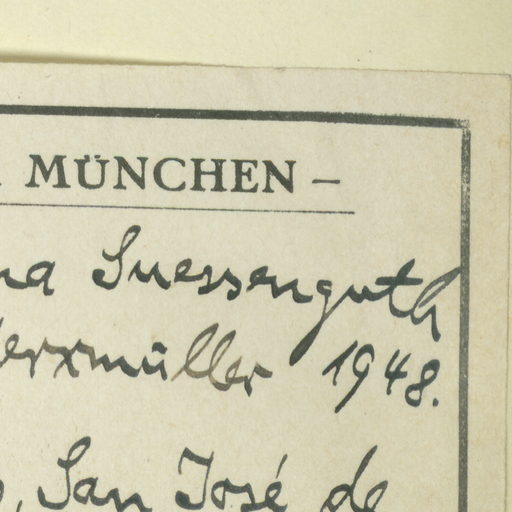 MÜNCHEN –
na Suessenguth
erxmüller 1948.
, San José de